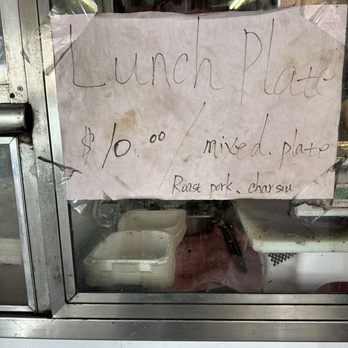 Lunch Plate
$10.00 / mixed. plate
Roast pork. char siu